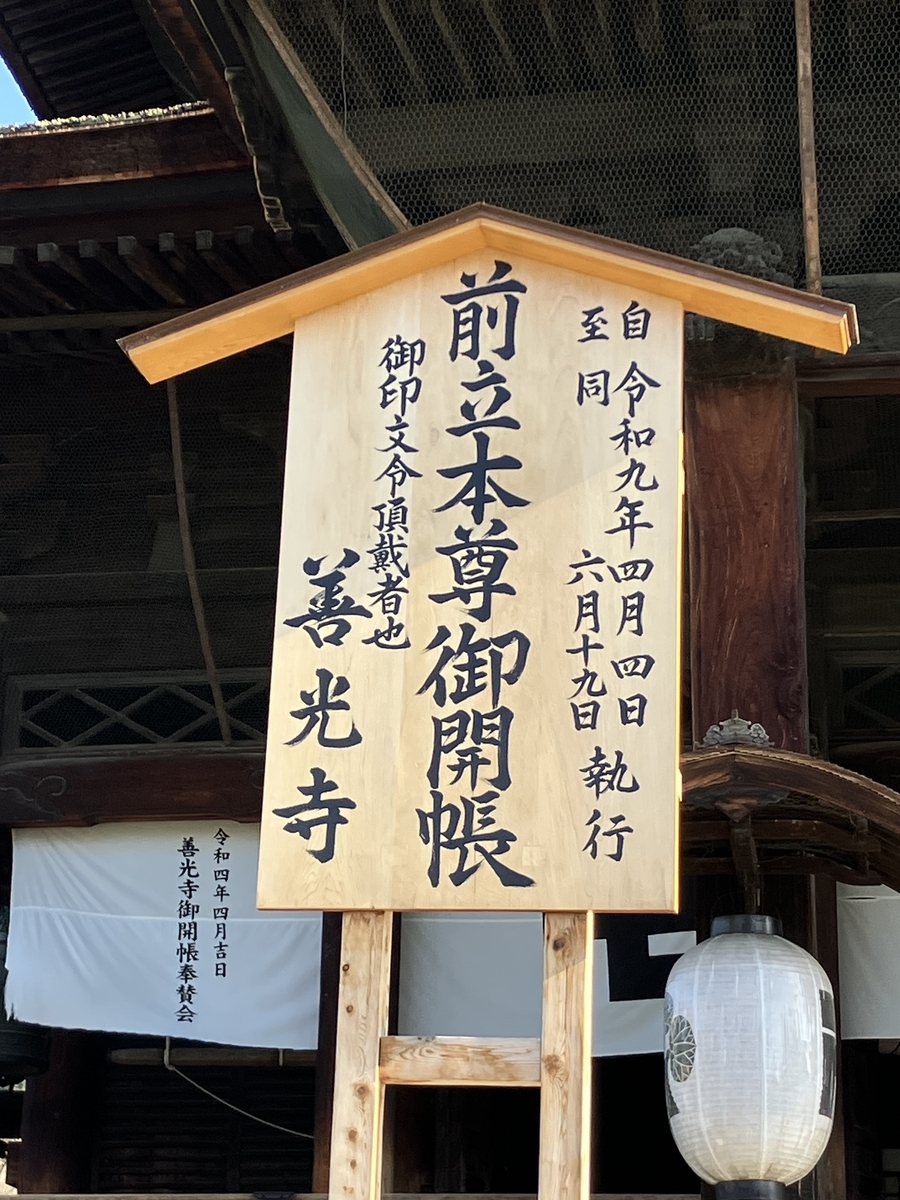 自 令和九年 四月 四日
至 同 六月十九日
執行
前立本尊御開帳
御印文令頂戴者也
善光寺
令和四年四月吉日
善光寺御開帳奉賛会